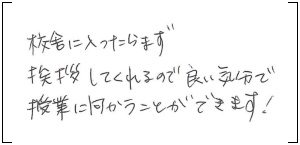 校舎に入ったらまず
挨拶してくれるので良い気分で
授業に向かうことができます!